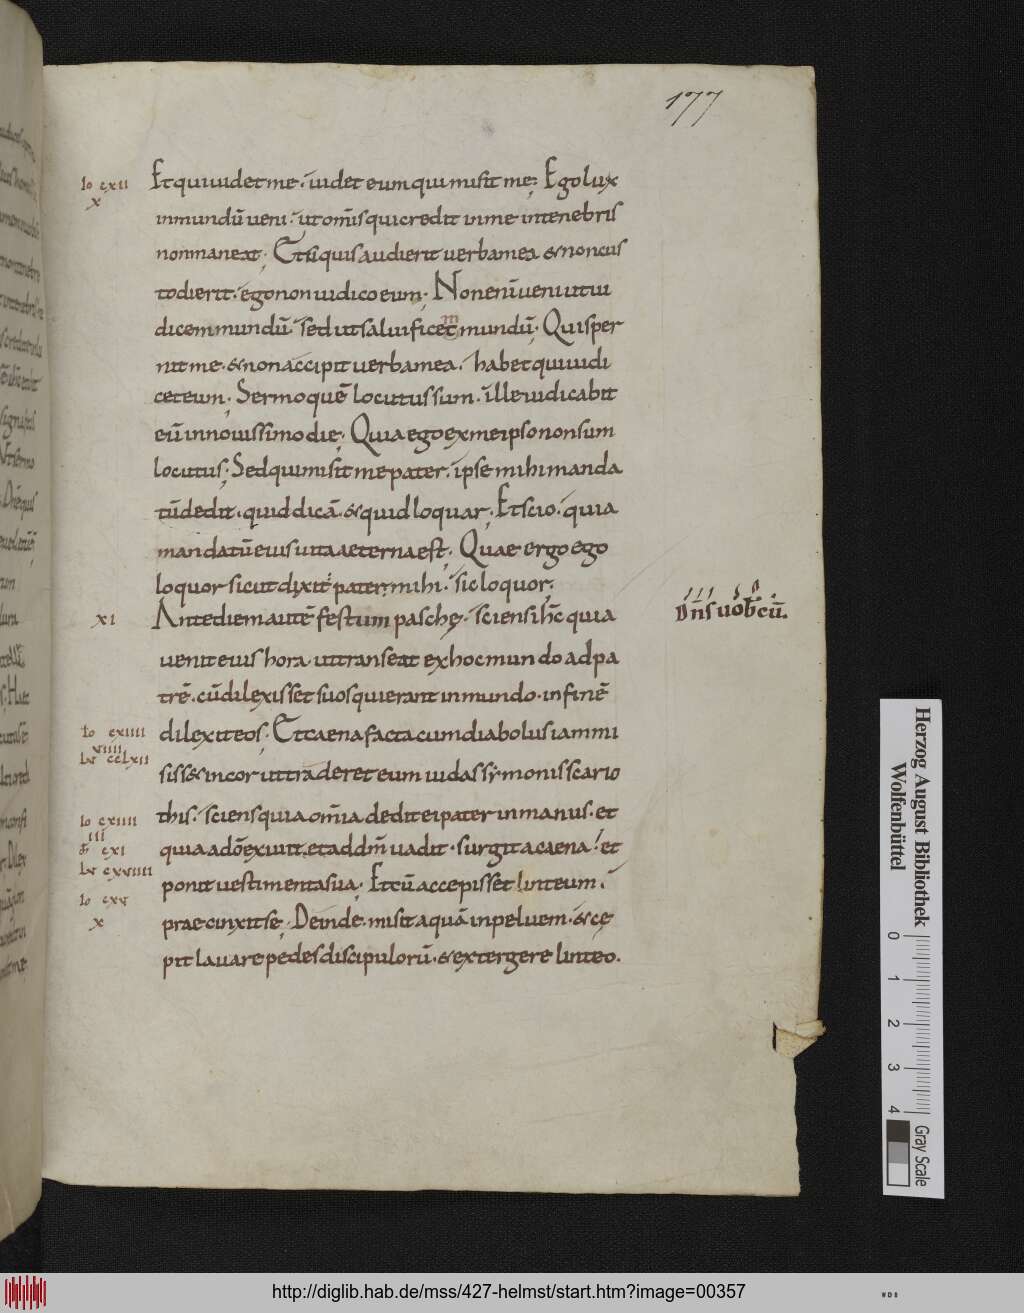 177
Io cxii
x
Et qui uidet me. uidet eum qui misit me; Ego lux
in mundū ueni. ut om̄is qui credit in me in tenebris
non maneat; Et si quis audierit uerba mea & non cus
todierit. ego non iudico eum; Non enī ueni ut iu
dicem mundū. sed ut saluificem mundū; Qui sper
nit me. & non accipit uerba mea. habet qui iudi
cet eum; Sermo quē locutus sum. ille iudicabit
eū in nouissimo die; Quia ego ex me ipso non sum
locutus; Sed qui misit me pater. ipse mihi manda
tū dedit. quid dicā. & quid loquar; Et scio. quia
mandatū eius uita aeterna est; Quae ergo ego
loquor sicut dixit pater mihi. sic loquor;
xi
Ante diem autē festum paschę. sciens ih̄c quia
dn̄s uob̄cū.
uenit eius hora ut transeat ex hoc mundo ad pa
trē. cū dilexisset suos qui erant in mundo. in finē
Io cxiiii
dilexit eos; Et caena facta cum diabolus iam mi
uiiii
Lv cclxii
sisset in cor ut traderet eum iudas symonis scario
this. sciens quia om̄ia dedit ei pater in manus. et
Io cxiiii
iii
quia a dō exiuit. et ad dm̄ uadit. surgit a caena. et
cxi
Lv cxxuiiii
ponit uestimenta sua; Et cū accepisset linteum.
Io cxv
x
praecinxit se; Deinde. misit aquā in peluem. & cę
pit lauare pedes discipulorū. & extergere linteo.
Herzog August Bibliothek
Wolfenbüttel
0 1 2 3 4
Gray Scale
http://diglib.hab.de/mss/427-helmst/start.htm?image=00357